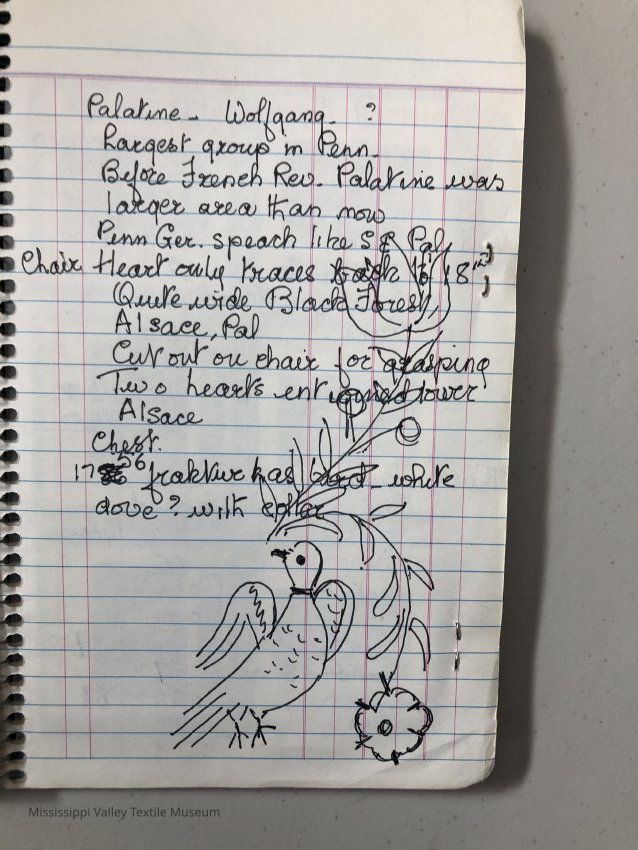 Palatine - Wolfgang - ?
Largest group in Penn.
Before French Rev. Palatine was
larger area than now
Penn Ger. speach like S E Pal,
Chair Heart only traces back to 18th
Quite wide Black Forest
Alsace, Pal
Cut out on chair for grasping
Two hearts flower
Alsace
Chest.
1756 fraktur has bird white
dove? with collar
Mississippi Valley Textile Museum